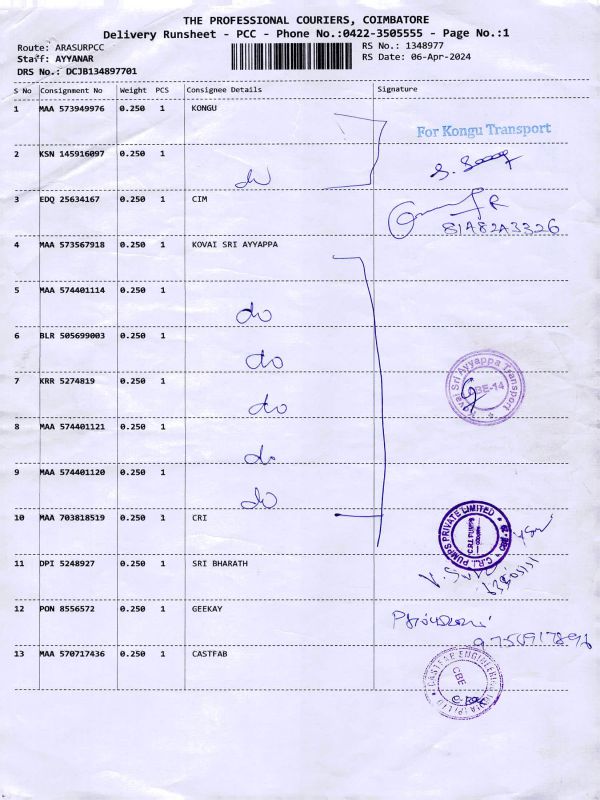 THE PROFESSIONAL COURIERS, COIMBATORE
Delivery Runsheet - PCC - Phone No.:0422-3505555 - Page No.:1
Route: ARASURPCC
RS No.: 1348977
Staff: AYYANAR
RS Date: 06-Apr-2024
DRS No.: DCJB134897701
S No Consignment No Weight PCS Consignee Details Signature
1 MAA 573949976 0.250 1 KONGU
For Kongu Transport
2 KSN 145916097 0.250 1
do
3 EDQ 25634167 0.250 1 CIM
81A82A3326
4 MAA 573567918 0.250 1 KOVAI SRI AYYAPPA
5 MAA 574401114 0.250 1
do
6 BLR 505699003 0.250 1
do
7 KRR 5274819 0.250 1
do
Kovai Sri Ayyappa Transport
CBE-14
8 MAA 574401121 0.250 1
do
9 MAA 574401120 0.250 1
do
10 MAA 703818519 0.250 1 CRI
C.R.I. PUMPS PRIVATE LIMITED
C.R.I. PUMPS
11 DPI 5248927 0.250 1 SRI BHARATH
12 PON 8556572 0.250 1 GEEKAY
13 MAA 570717436 0.250 1 CASTFAB
CBE